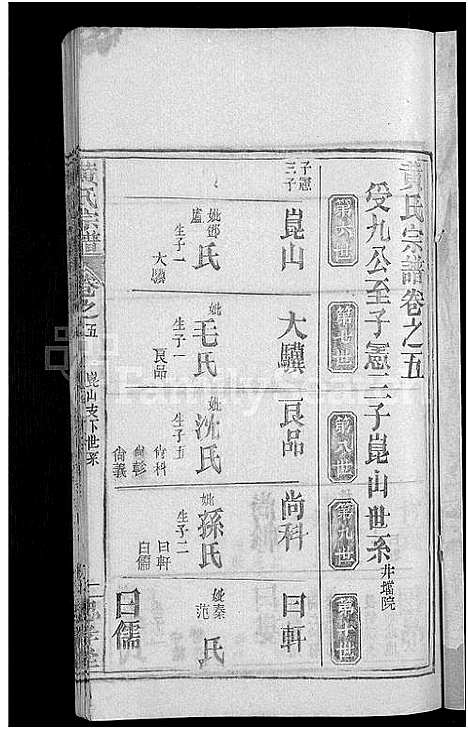 黄氏宗譜卷之五
受九公至子憲三子崑山世系井壋院
第六世
第七世
第八世
第九世
第十世
子憲三子
崑山
妣鄧盧氏
生子一
大驥
大驥
妣毛氏
生子一
良品
良品
妣沈氏
生子五
尚科
尚彭
尚義
尚科
妣孫氏
生子二
曰軒
曰儒
曰軒
妣秦范氏
曰儒
黄氏宗譜
卷之五
崑山支下世系
FamilySearch